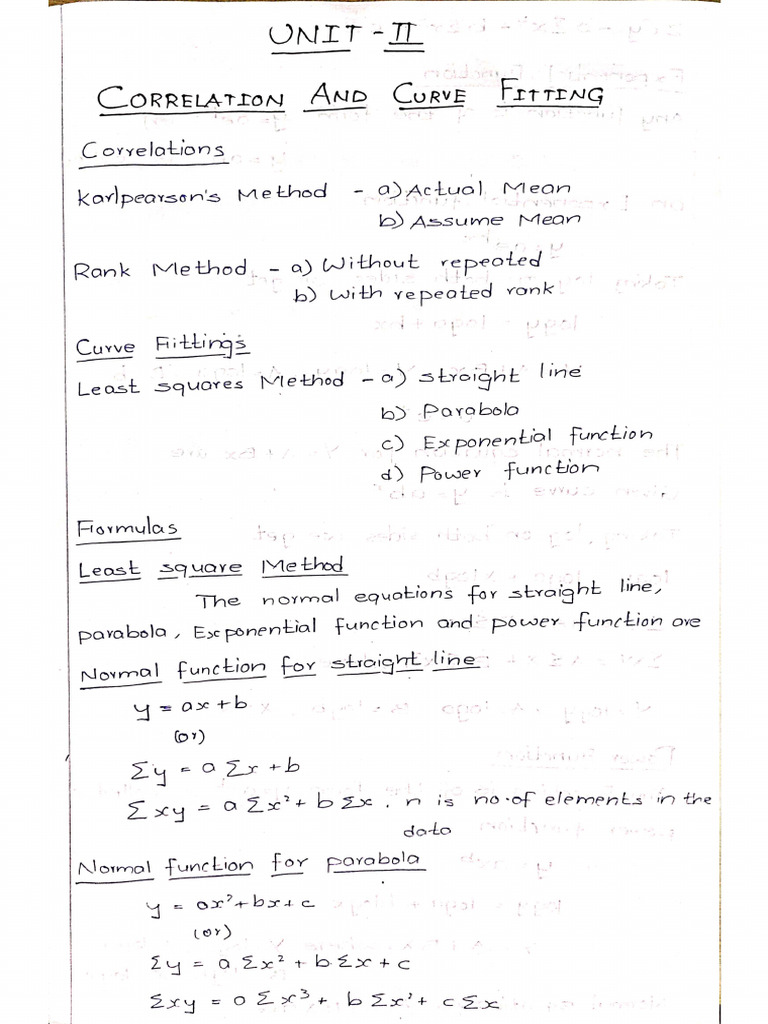 UNIT - II
CORRELATION AND CURVE FITTING
Correlations
Karlpearson's Method - a) Actual Mean
b) Assume Mean
Rank Method - a) Without repeated
b) With repeated rank
Curve Fittings
Least squares Method - a) straight line
b) Parabola
c) Exponential function
d) Power function
Formulas
Least square Method
The normal equations for straight line,
parabola, Exponential function and power function are
Normal function for straight line
y = ax + b
(or)
Σy = a Σx + b
Σxy = a Σx² + b Σx, n is no. of elements in the
data
Normal function for parabola
y = ax² + bx + c
(or)
Σy = a Σx² + b Σx + c
Σxy = a Σx³ + b Σx² + c Σx